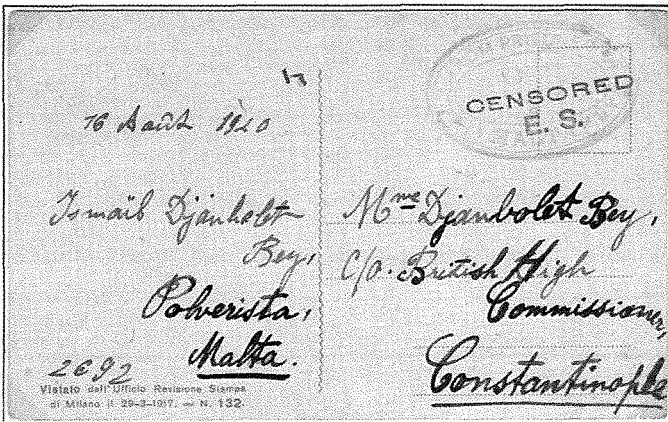 16 Août 1920
Ismaïl Djanbolet
Bey,
Polverista,
Malta.
2692
Vistato dall'Ufficio Revisione Stampa
di Milano il 29-3-1917. — N. 132.
CENSORED
E. S.
Mme Djanbolet Bey,
c/o. British High
Commissioner,
Constantinople